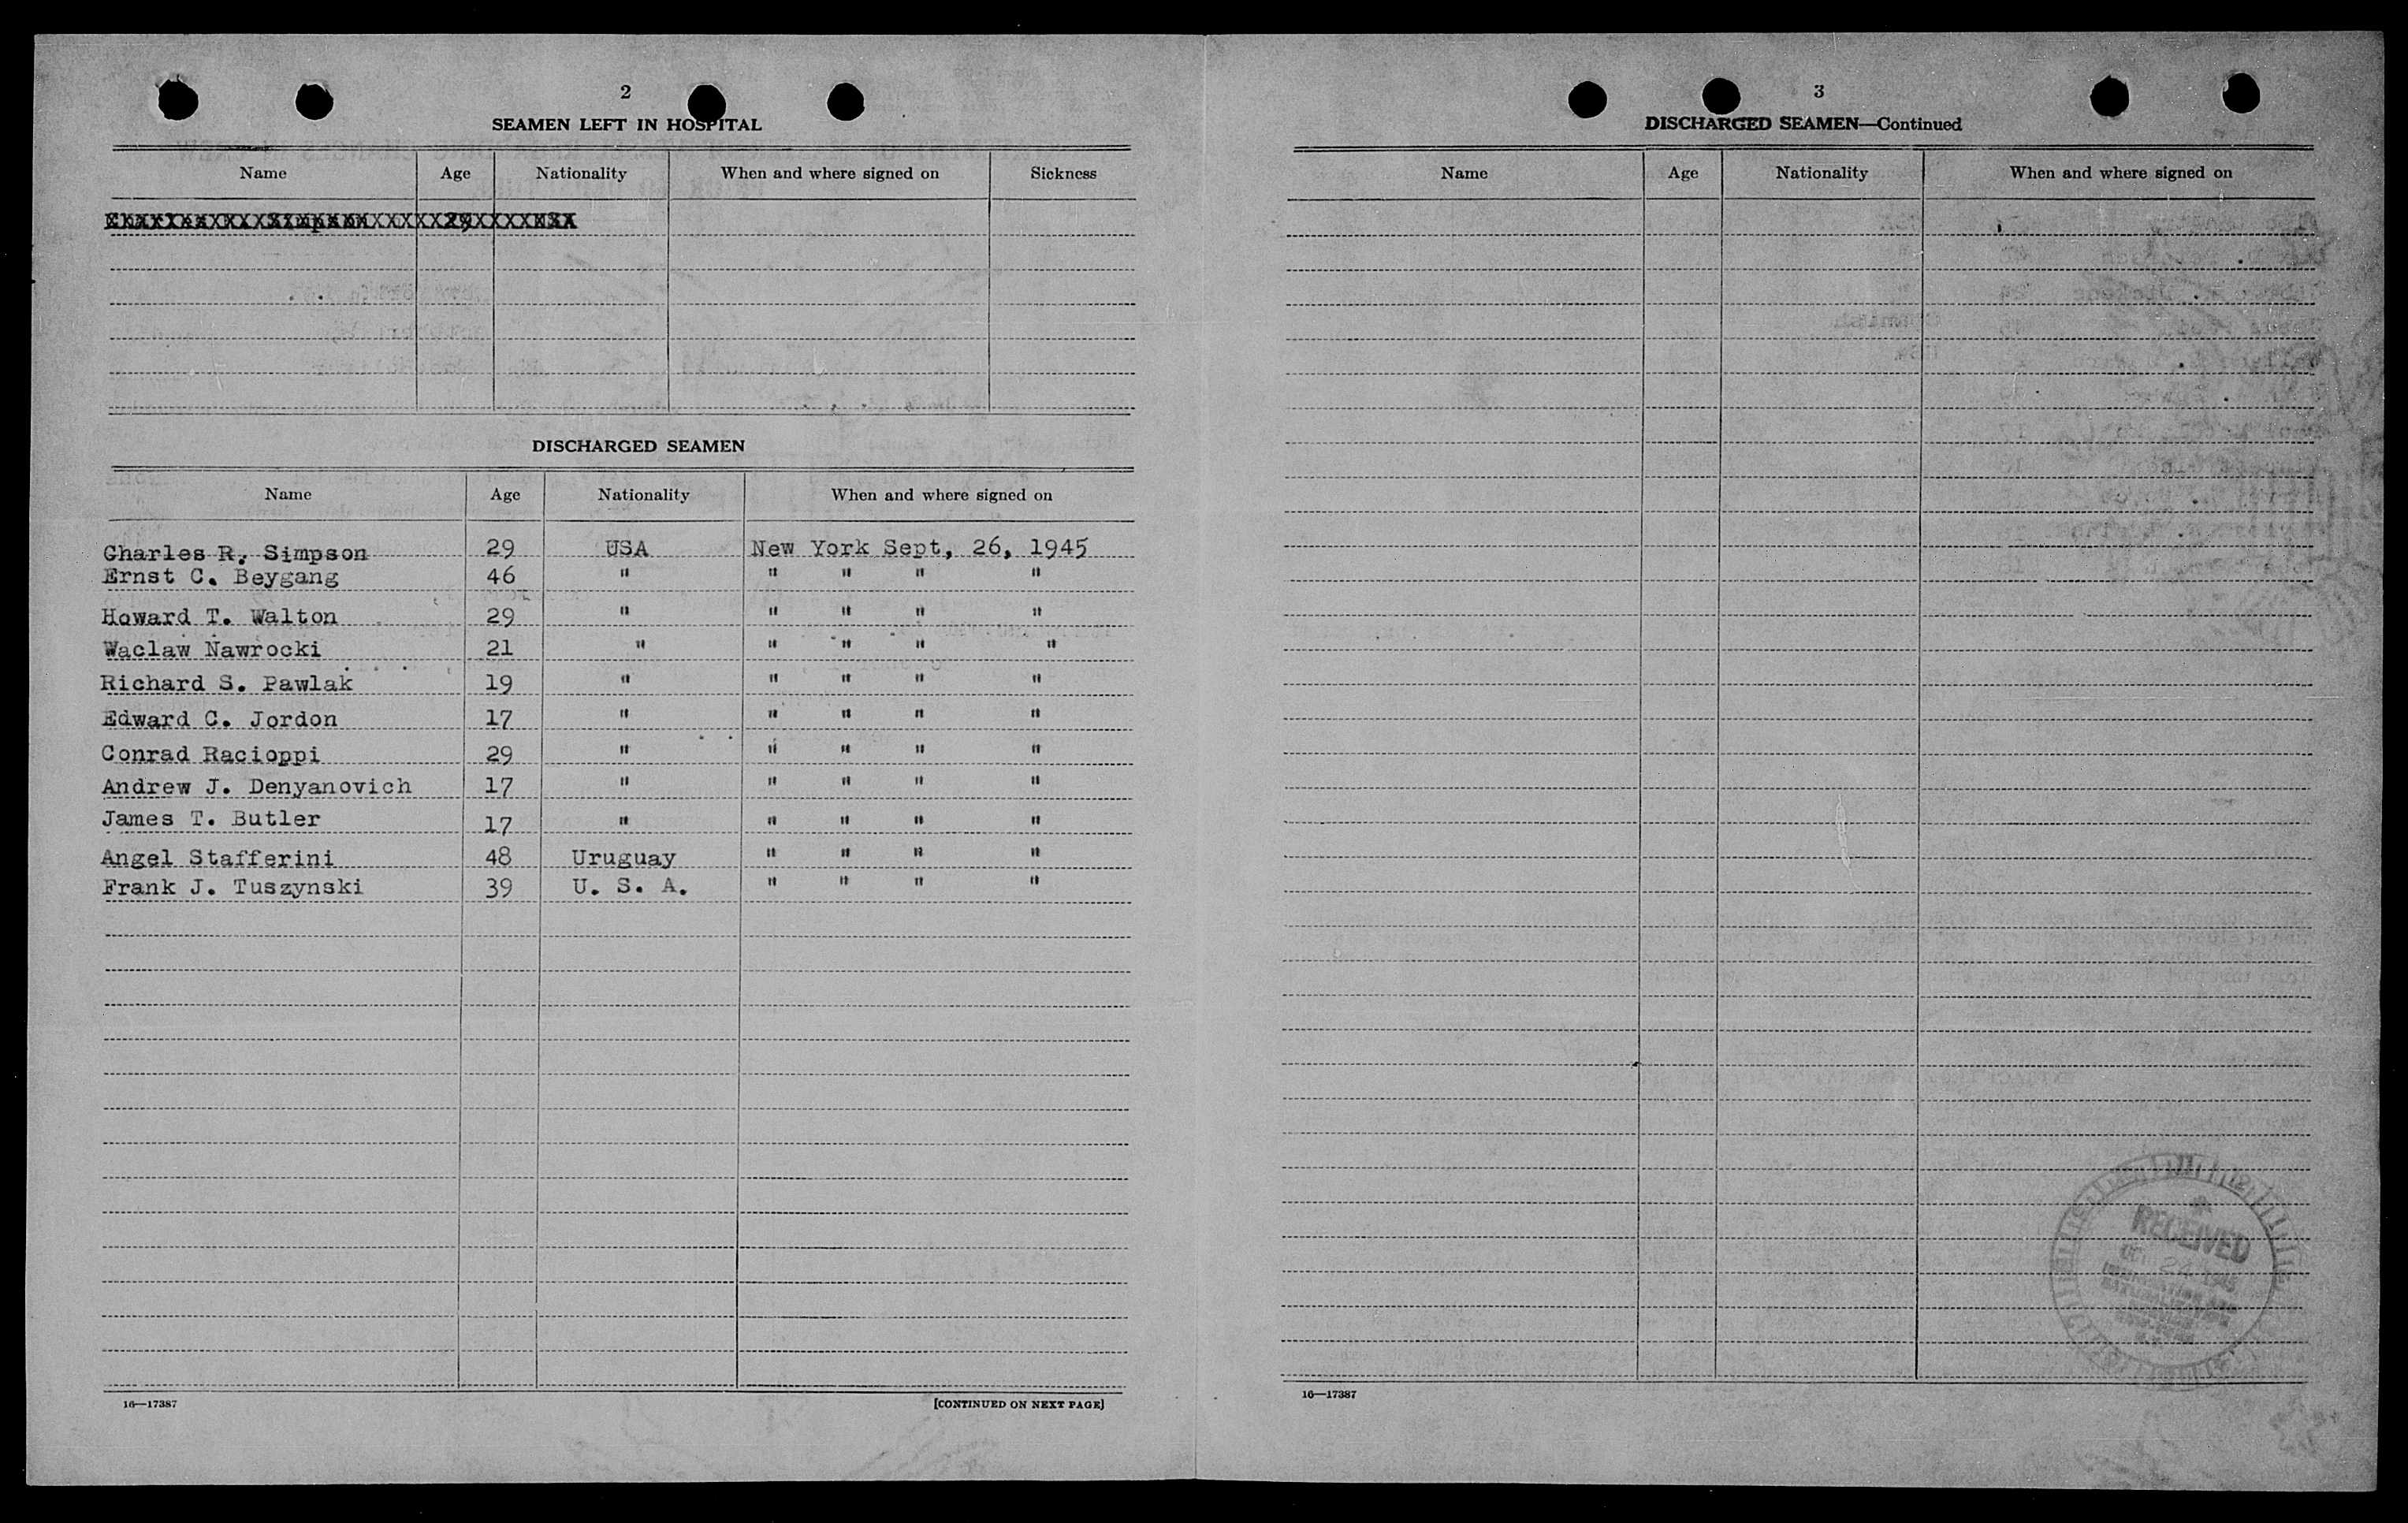 2
SEAMEN LEFT IN HOSPITAL
Name Age Nationality When and where signed on Sickness
Charles R. Simpson 29 USA
DISCHARGED SEAMEN
Name Age Nationality When and where signed on
Charles R. Simpson 29 USA New York Sept, 26, 1945
Ernst C. Beygang 46 " " " " "
Howard T. Walton 29 " " " " "
Waclaw Nawrocki 21 " " " " "
Richard S. Pawlak 19 " " " " "
Edward C. Jordon 17 " " " " "
Conrad Racioppi 29 " " " " "
Andrew J. Denyanovich 17 " " " " "
James T. Butler 17 " " " " "
Angel Stafferini 48 Uruguay " " " "
Frank J. Tuszynski 39 U. S. A. " " " "
16—17387 [CONTINUED ON NEXT PAGE]
3
DISCHARGED SEAMEN—Continued
Name Age Nationality When and where signed on
RECEIVED
OCT 24 1945
IMMIGRATION AND
NATURALIZATION
16—17387